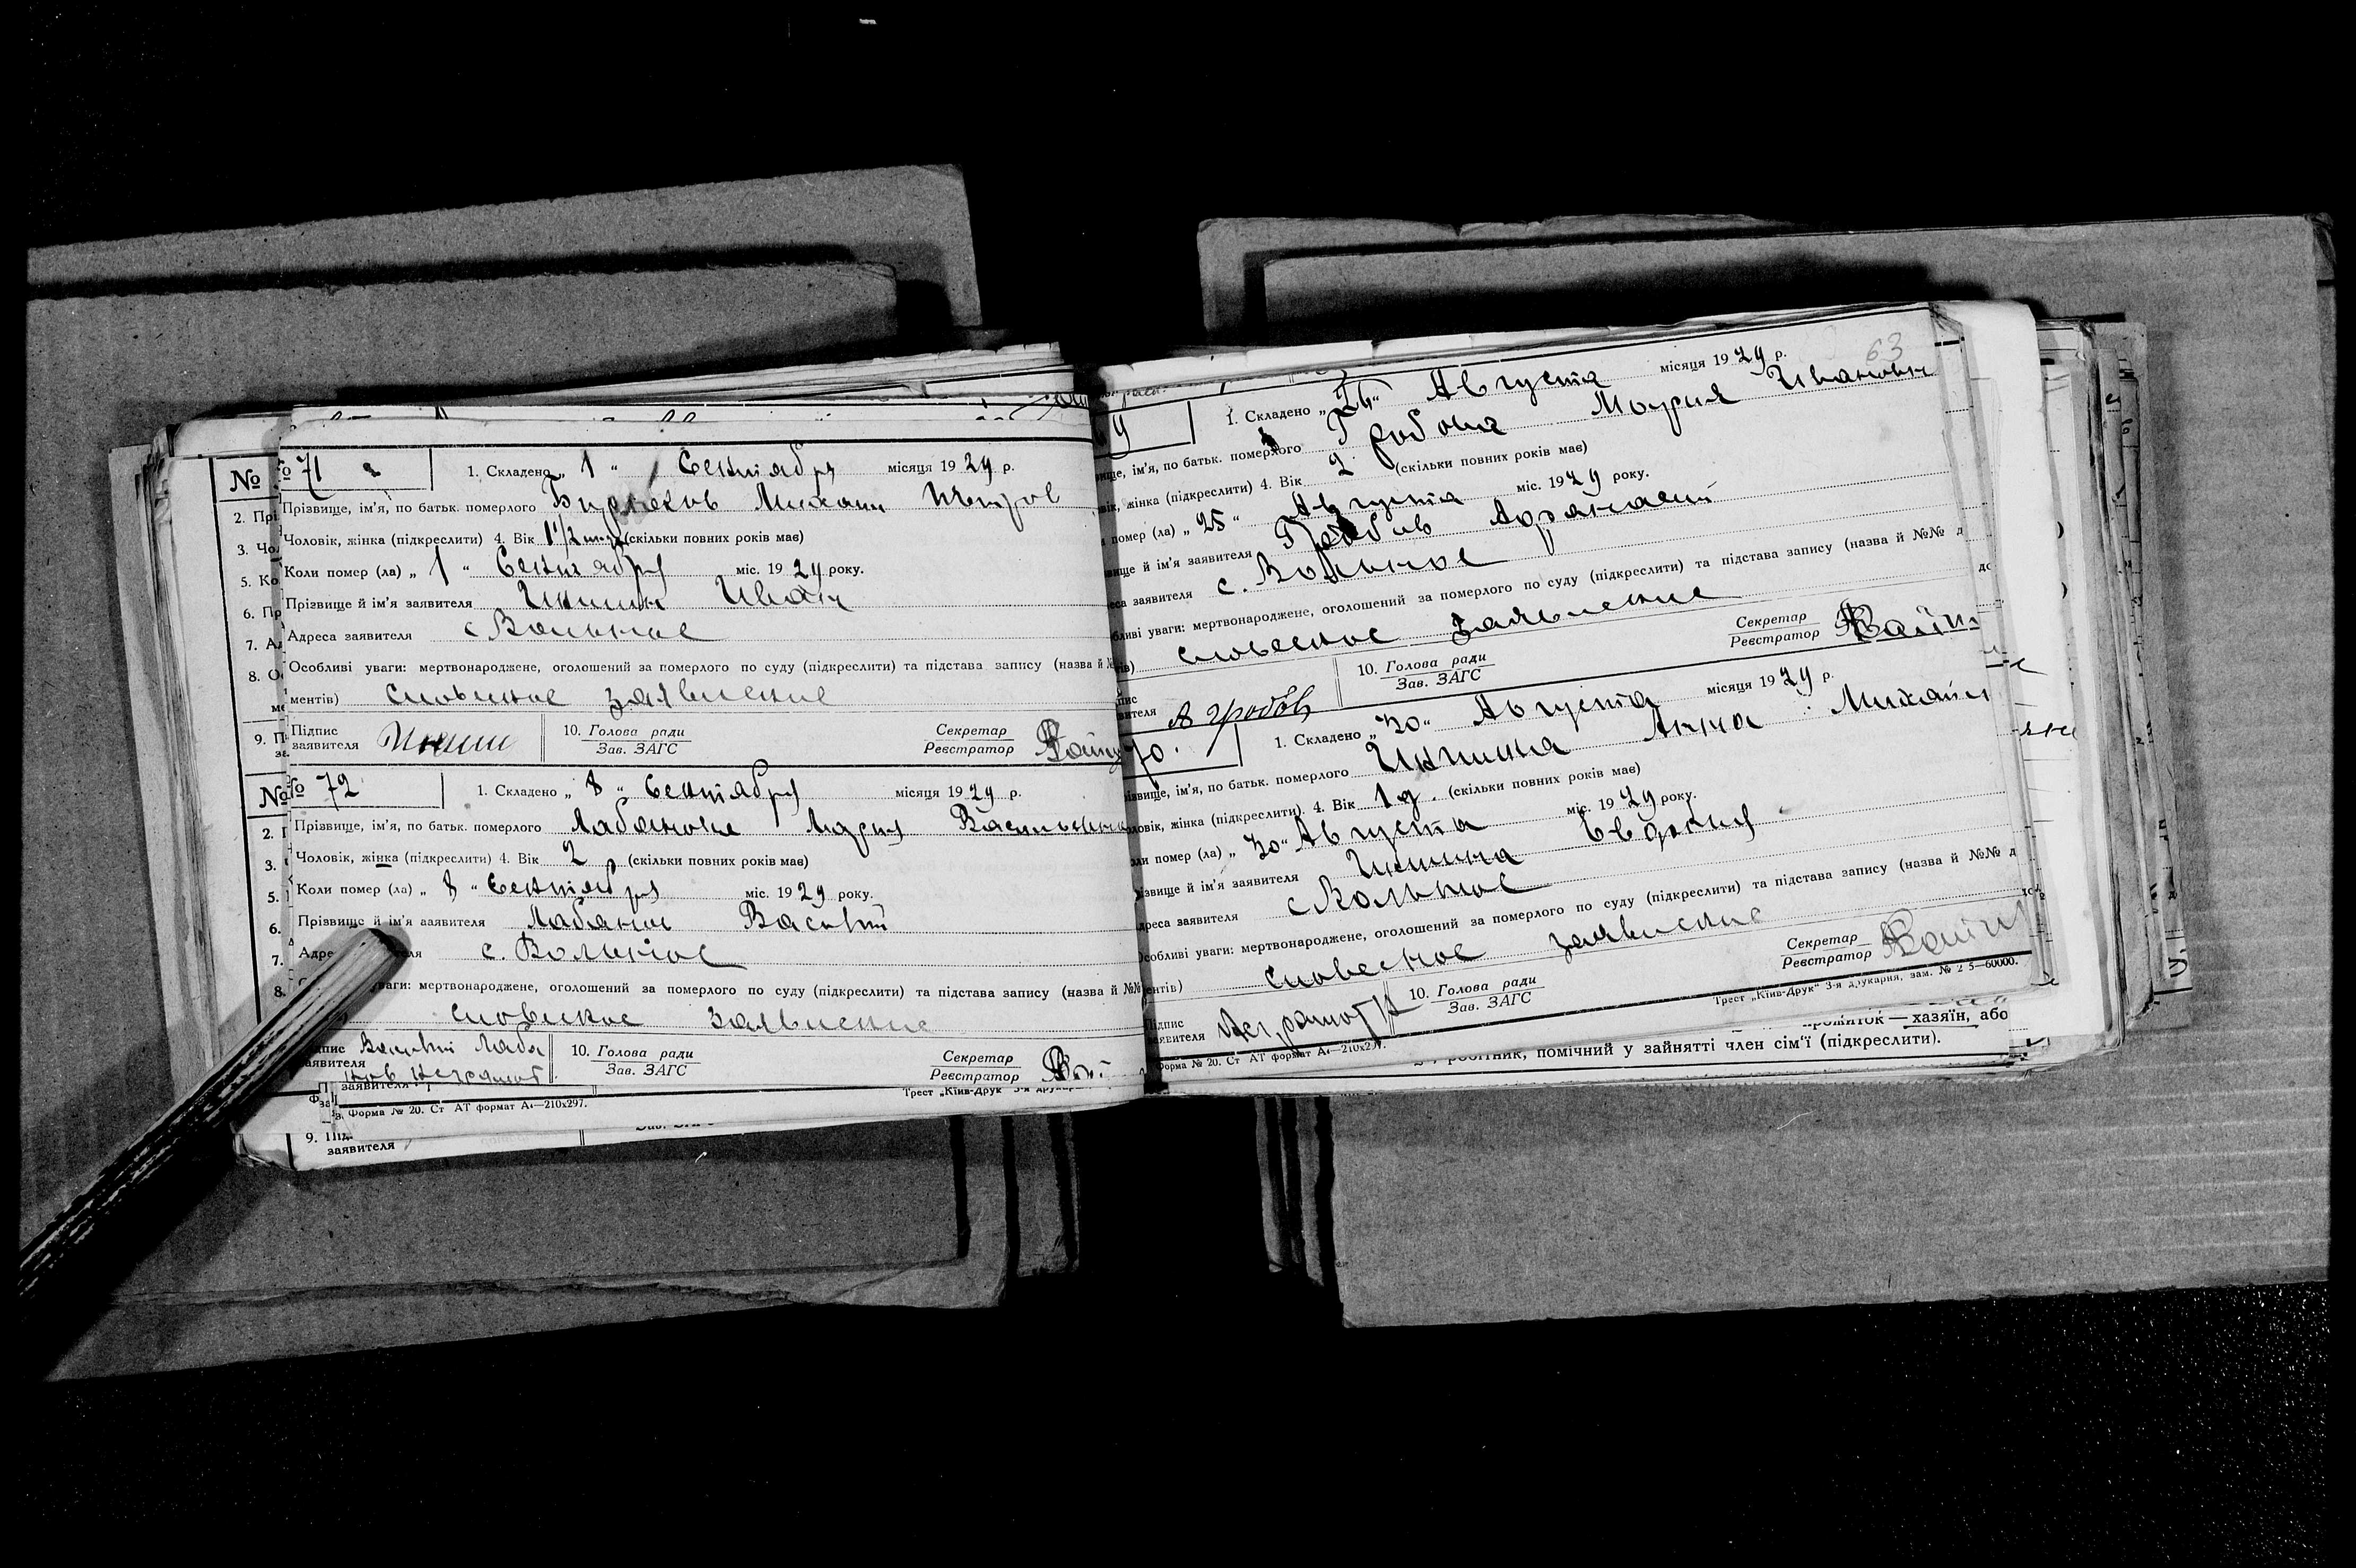 № 71
1. Складено „ 1 “ Сентября місяця 1929 р.
Прізвище, ім'я, по батьк. померлого Михаил Петров
Чоловік, жінка (підкреслити) 4. Вік 1 1/2 (скільки повних років має)
Коли помер (ла) „ 1 “ Сентября міс. 1929 року.
Прізвище й ім'я заявителя Икшин Иван
Адреса заявителя с Вольное
Особливі уваги: мертвонароджене, оголошений за померлого по суду (підкреслити) та підстава запису (назва й №
ментів) словесное заявление
Підпис заявителя
10. Голова ради
Зав. ЗАГС
Секретар
Реєстратор
№ 72
1. Складено „ 8 “ Сентября місяця 1929 р.
Прізвище, ім'я, по батьк. померлого Лабанова Мария Васильевна
Чоловік, жінка (підкреслити) 4. Вік 2 (скільки повних років має)
Коли помер (ла) „ 8 “ Сентября міс. 1929 року.
Прізвище й ім'я заявителя Лабанов Василий
с. Вольное
уваги: мертвонароджене, оголошений за померлого по суду (підкреслити) та підстава запису (назва й №№
словесное заявление
заявителя Василий Лаба
нов неграмот.
10. Голова ради
Зав. ЗАГС
Секретар
Реєстратор
Форма № 20. Ст АТ формат А4—210х297.
Трест „Київ-Друк" 3-я друкар
9. Підп
заявителя
63
69
1. Складено „ 26 “ Августа місяця 1929 р.
вище, ім'я, по батьк. померлого Гробова Мария Ивановн
вік, жінка (підкреслити) 4. Вік 2 (скільки повних років має)
помер (ла) „ 25 “ Августа міс. 1929 року.
вище й ім'я заявителя Гробов Афанасий
еса заявителя с. Вольное
бливі уваги: мертвонароджене, оголошений за померлого по суду (підкреслити) та підстава запису (назва й №№ д
словесное заявление
заявителя А Гробов
10. Голова ради
Зав. ЗАГС
Секретар
Реєстратор
70.
1. Складено „ 30 “ Августа місяця 1929 р.
ізвище, ім'я, по батьк. померлого Икшина Анна Михайл
ловік, жінка (підкреслити). 4. Вік 1 г. (скільки повних років має)
ли помер (ла) „ 30 “ Августа міс. 1929 року.
ізвище й ім'я заявителя Икшина Евдокия
дреса заявителя с Вольное
Особливі уваги: мертвонароджене, оголошений за померлого по суду (підкреслити) та підстава запису (назва й №№ д
ентів) словесное заявление
Підпис заявителя Неграмотн
10. Голова ради
Зав. ЗАГС
Секретар
Реєстратор
Форма № 20. Ст АТ формат А4—210х297.
Трест „Київ-Друк" 3-я друкарня, зам. № 2 5—60000.
прожиток — хазяїн, або
робітник, помічний у зайнятті член сім'ї (підкреслити).